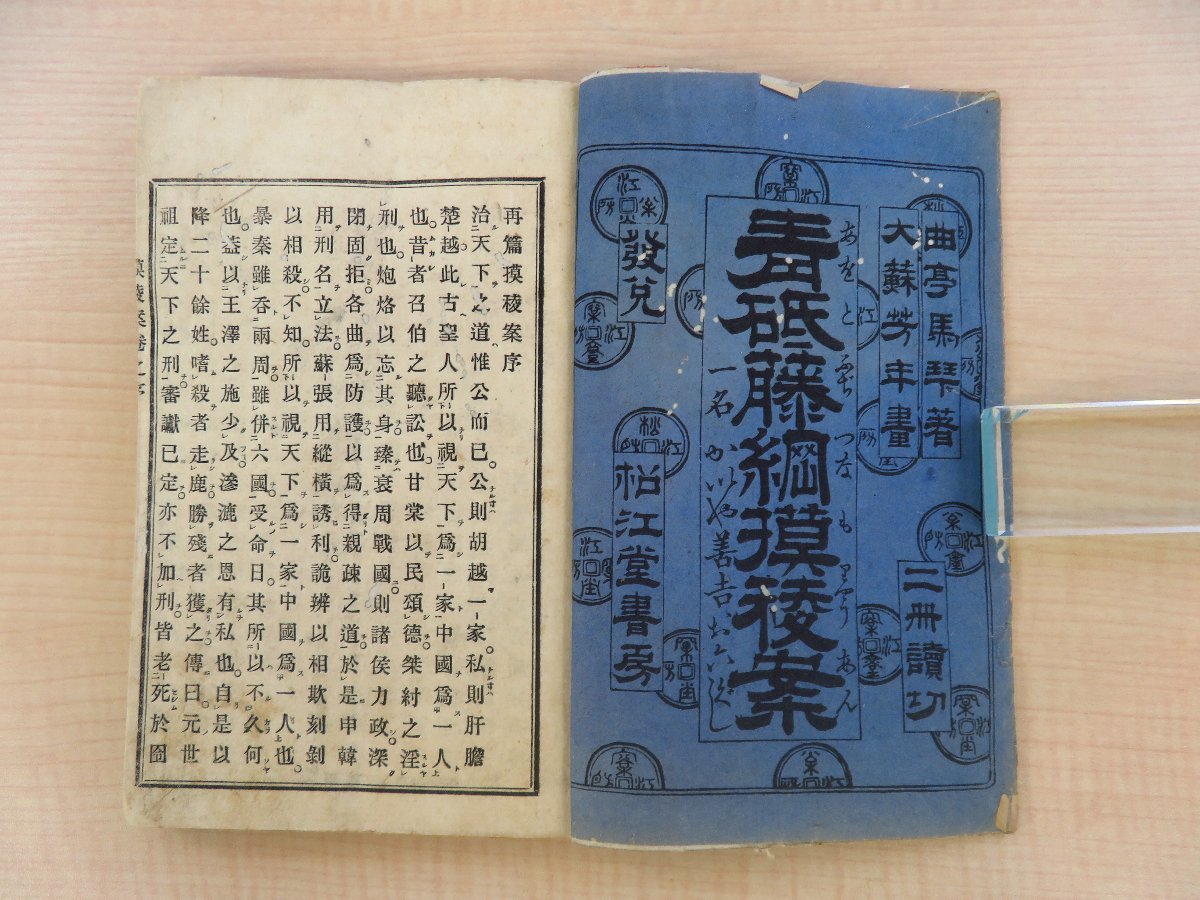 曲亭馬琴著
大蘇芳年畫
二冊讀切
青砥藤綱摸稜案
あをとふぢつなもりやうあん
發兌
松江堂書房
再篇摸稜案序
治天下之道惟公而已公則胡越一家私則肝膽
楚越此古聖人所以視天下爲一家中國爲一人
也昔者召伯之聽訟也甘棠以民頌德桀紂之淫
刑也炮烙以忘其身臻衰周戰國則諸侯力政深
閉固拒各曲爲防護以爲得親疎之道於是申韓
用刑名立法蘇張用縱橫誘利詭辨以相欺刻剝
以相殺不知所以視天下爲一家中國爲一人也
暴秦雖呑兩周雖併六國受命日其所以不久何
也葢以王澤之施少及滲漉之恩有私也自是以
降二十餘姓嗜殺者走鹿勝殘者獲之傳曰元世
祖定天下之刑審讞已定亦不加刑皆老死於囹
摸稜案卷之序